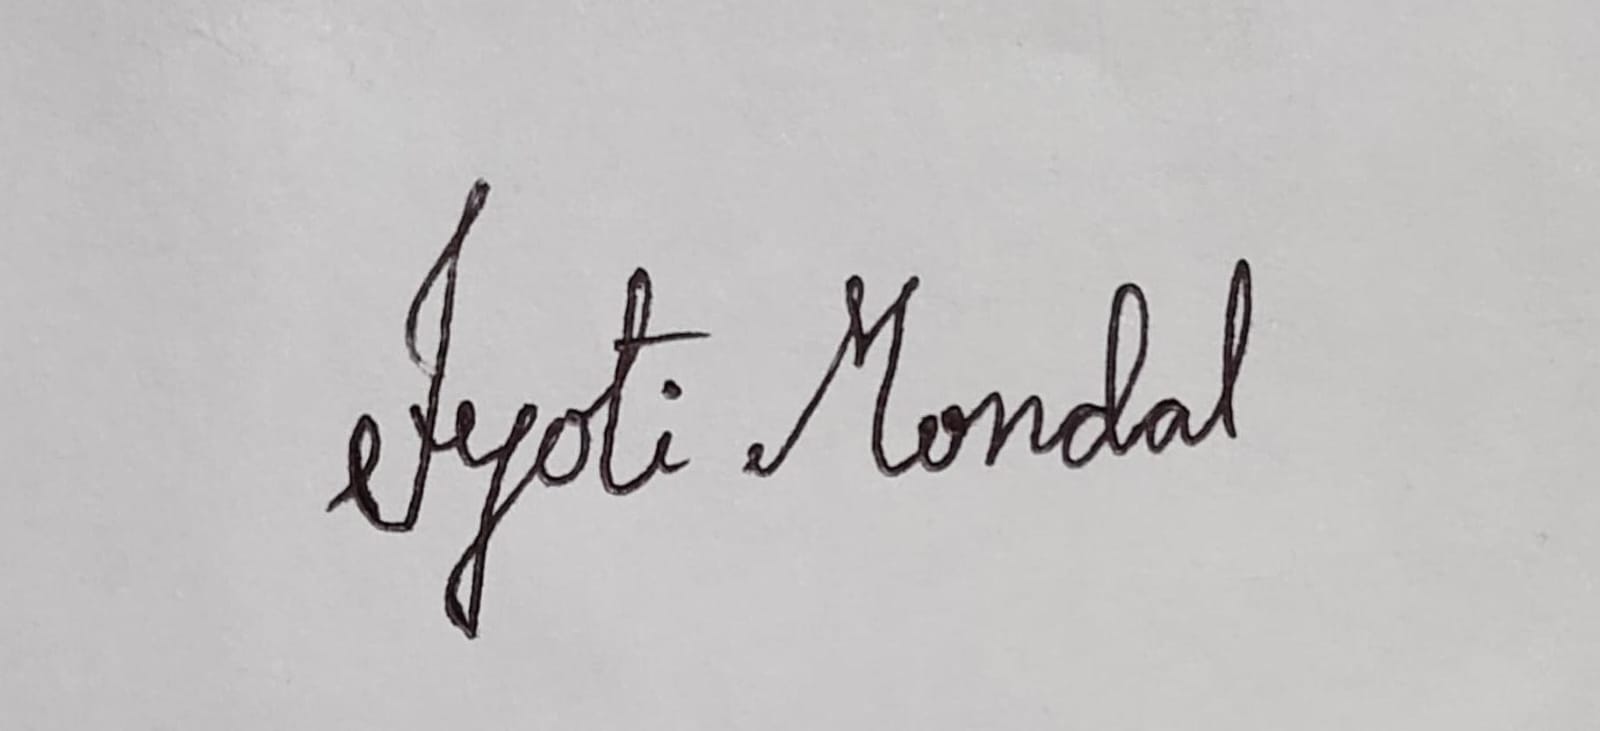 Jyoti Mondal